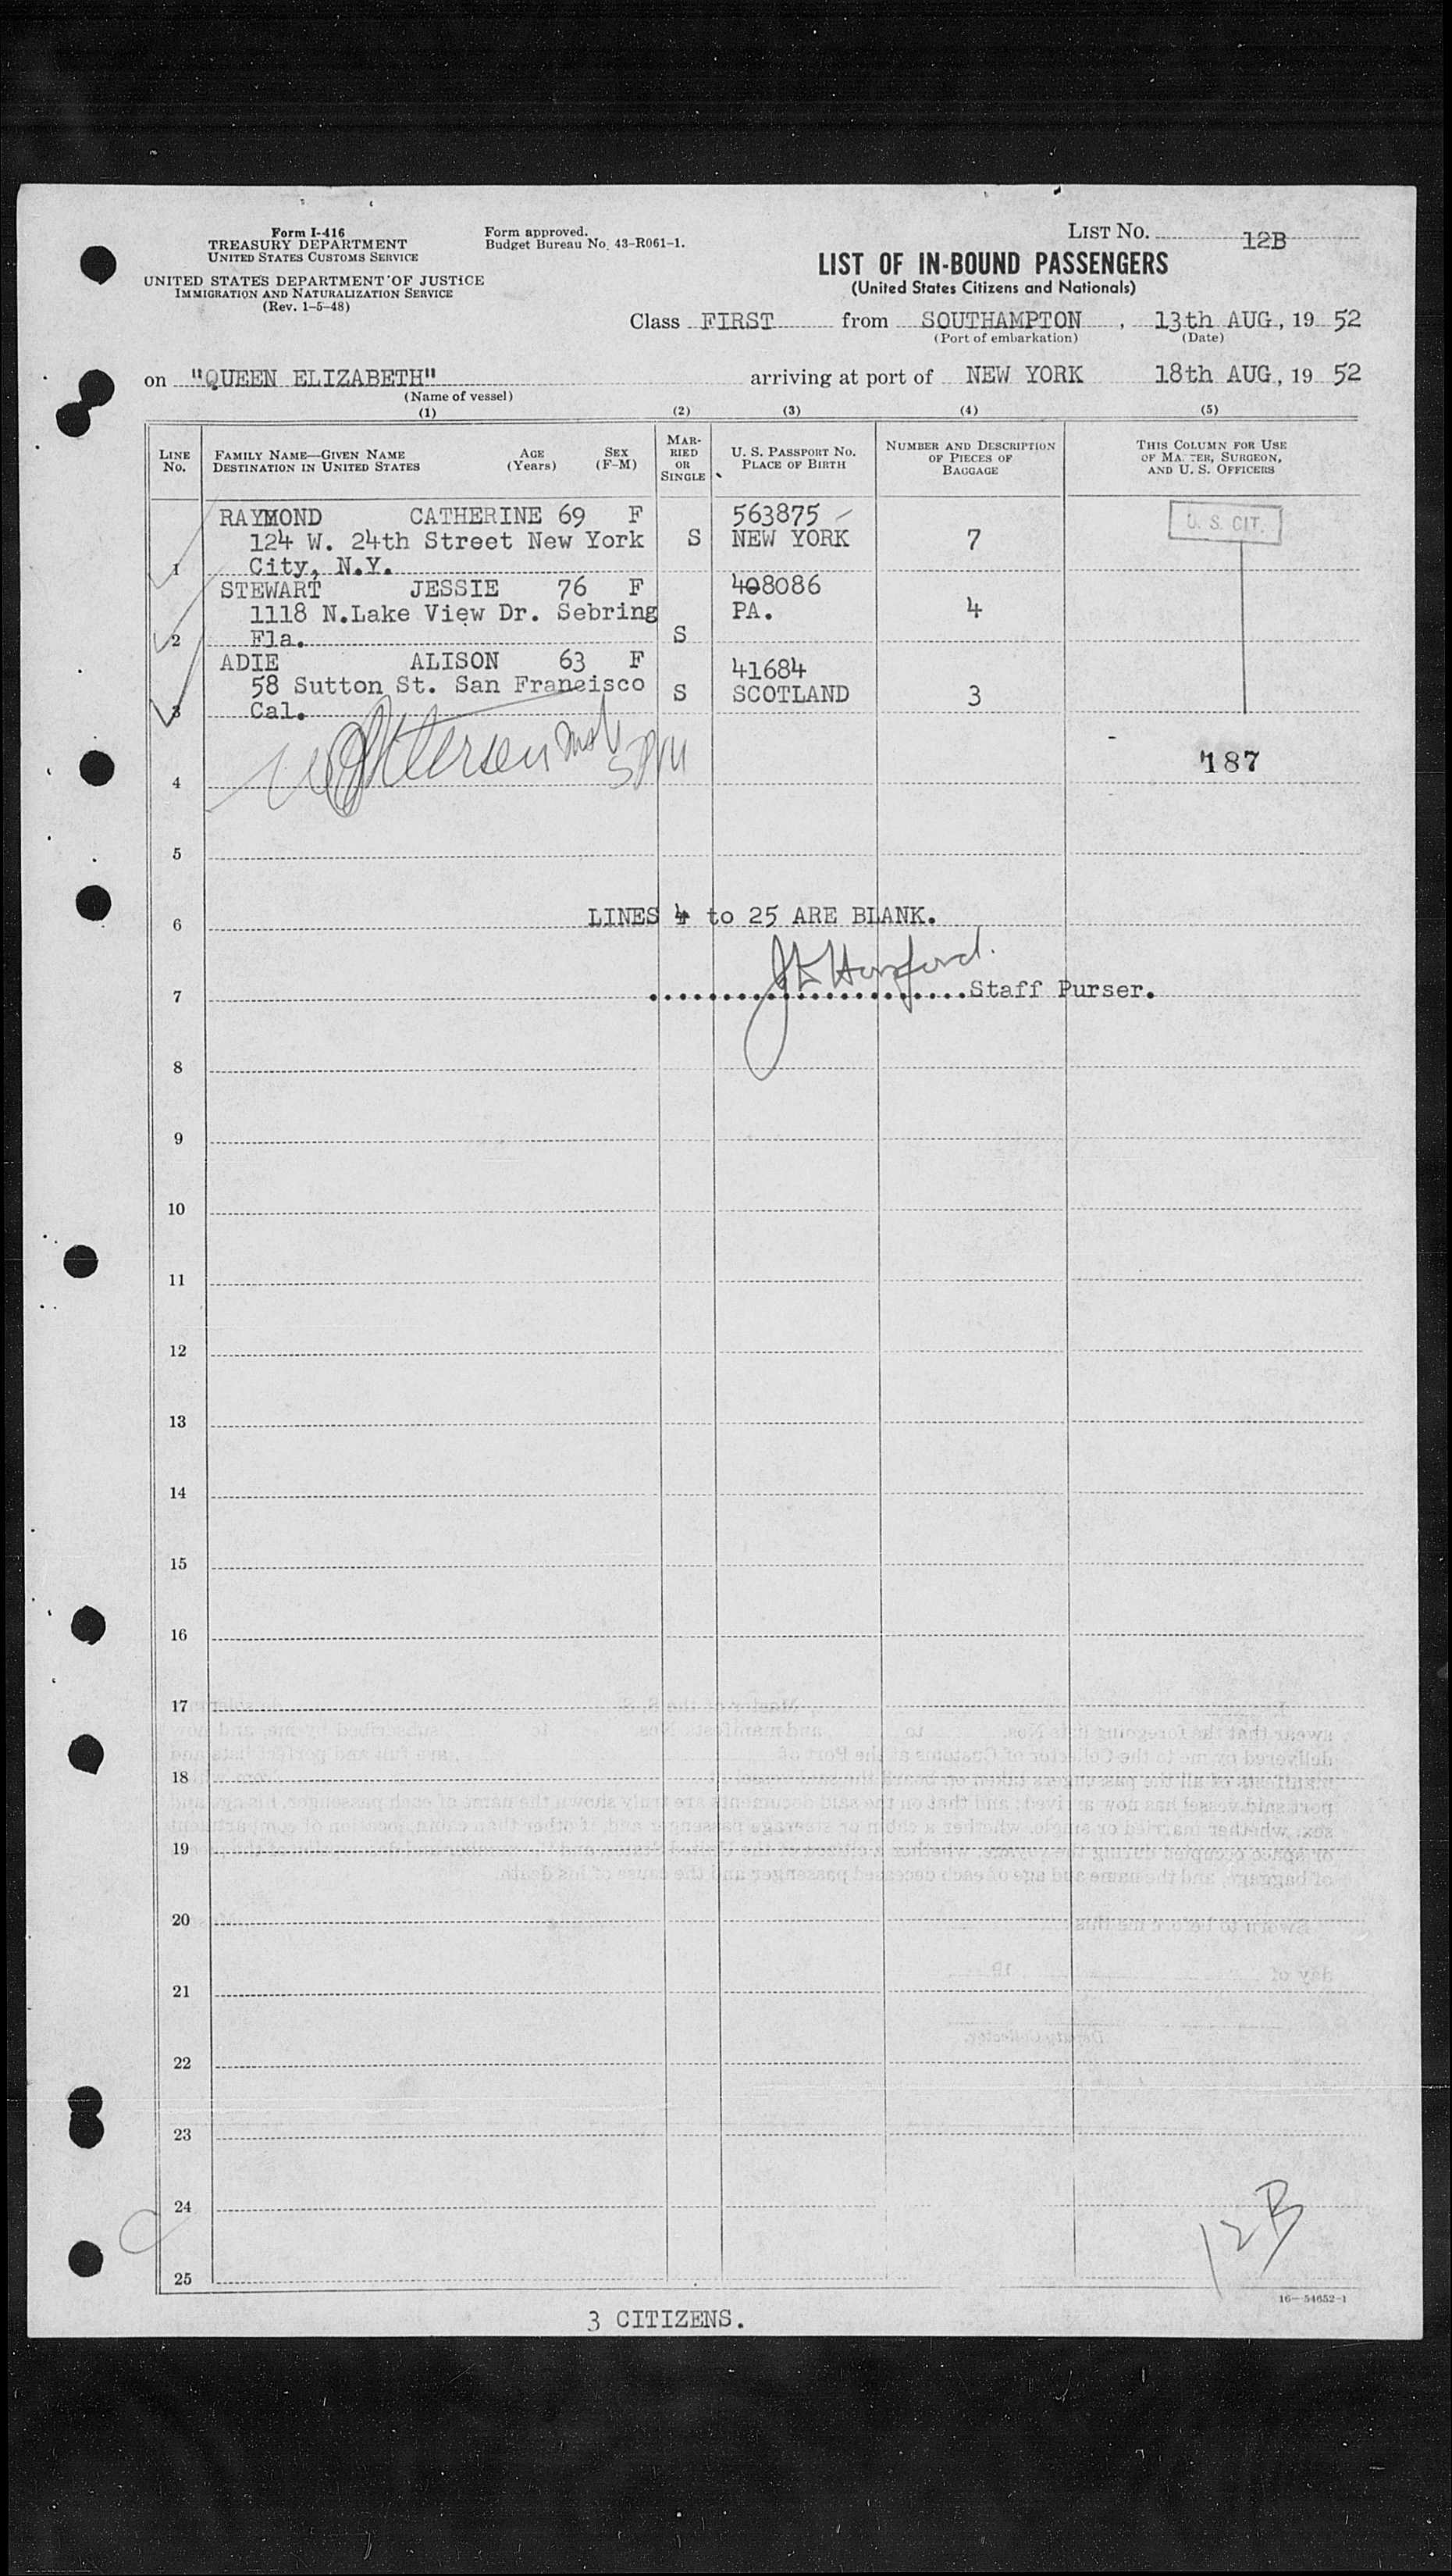 Form I-416
TREASURY DEPARTMENT
UNITED STATES CUSTOMS SERVICE
UNITED STATES DEPARTMENT OF JUSTICE
IMMIGRATION AND NATURALIZATION SERVICE
(Rev. 1-5-48)
Form approved.
Budget Bureau No. 43-R061-1.
LIST NO. 12B
LIST OF IN-BOUND PASSENGERS
(United States Citizens and Nationals)
Class FIRST from SOUTHAMPTON, 13th AUG, 19 52
(Port of embarkation) (Date)
on "QUEEN ELIZABETH" arriving at port of NEW YORK 18th AUG, 19 52
(Name of vessel)
(1) (2) (3) (4) (5)
LINE No.
FAMILY NAME—GIVEN NAME AGE (Years) SEX (F-M)
DESTINATION IN UNITED STATES
MARRIED OR SINGLE
U. S. PASSPORT NO.
PLACE OF BIRTH
NUMBER AND DESCRIPTION OF PIECES OF BAGGAGE
THIS COLUMN FOR USE OF MASTER, SURGEON, AND U. S. OFFICERS
RAYMOND CATHERINE 69 F 563875 U. S. CIT.
124 W. 24th Street New York S NEW YORK 7
1 City, N.Y.
STEWART JESSIE 76 F 408086
1118 N.Lake View Dr. Sebring PA. 4
2 Fla. S
ADIE ALISON 63 F 41684
58 Sutton St. San Francisco S SCOTLAND 3
3 Cal.
187
4
5
LINES 4 to 25 ARE BLANK.
6
7 Staff Purser.
8
9
10
11
12
13
14
15
16
17
18
19
20
21
22
23
24
12B
25
16—54652-1
3 CITIZENS.